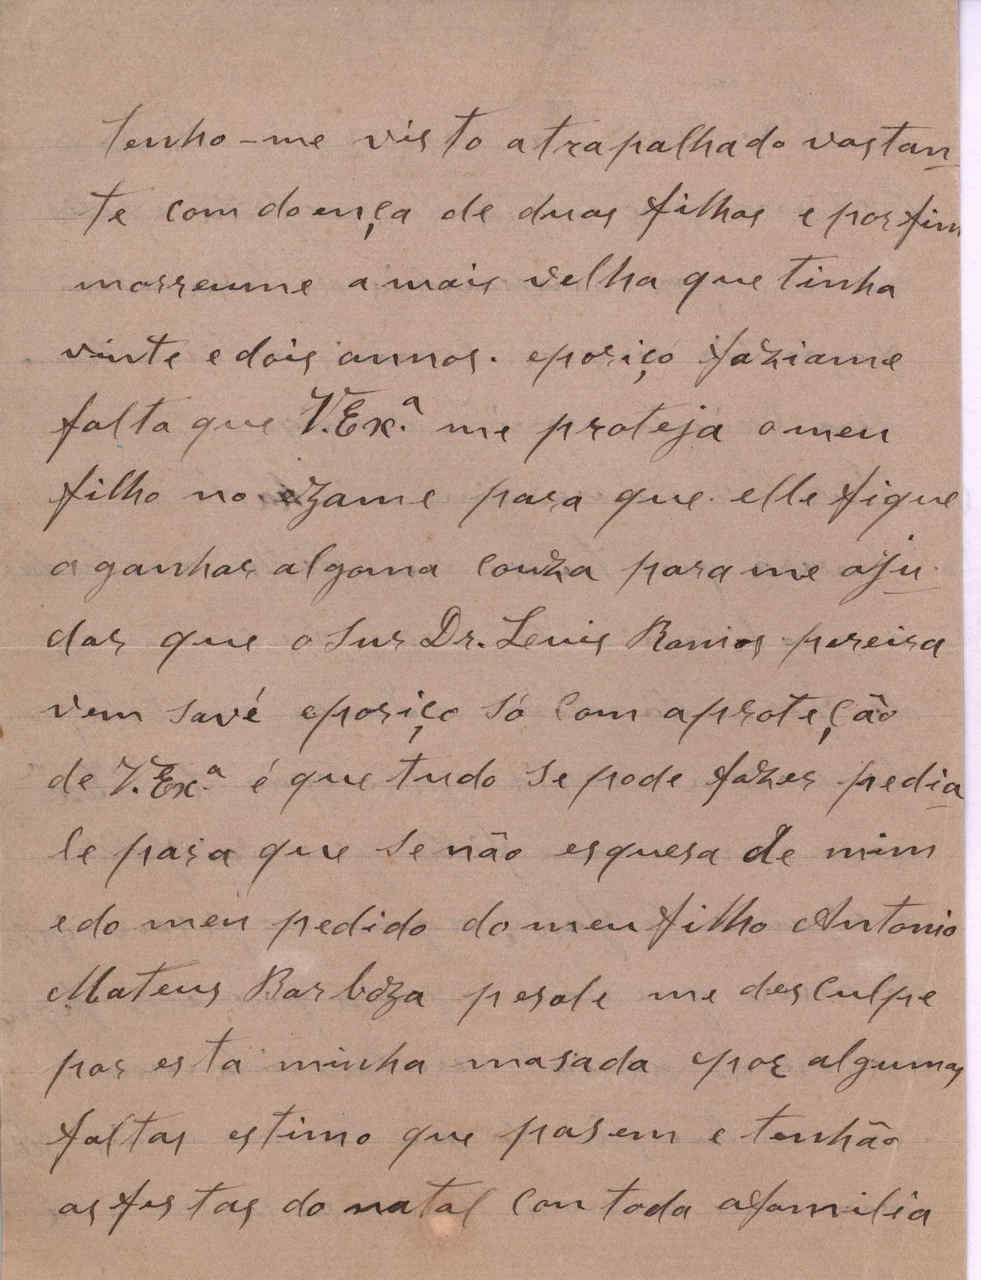 tenho-me visto atrapalhado vastan
te com doença de duas filhas e por fim
morreume a mais velha que tinha
vinte e dois annos. eporiço faziame
falta que V. Exª. me proteja o meu
filho no ezame para que elle fique
a ganhar algoma couza para me aju
dar que o Snr Dr. Leuis Ramos pereira
vem savé eporiço só com a proteção
de V. Exª é que tudo se pode fazer pedia
le para que se não esquesa de mim
e do meu pedido do meu filho Antonio
Mateus Barboza pesole me desculpe
por esta minha masada epor algumas
faltas estimo que pasem e tenhão
as festas do natal con toda a familia